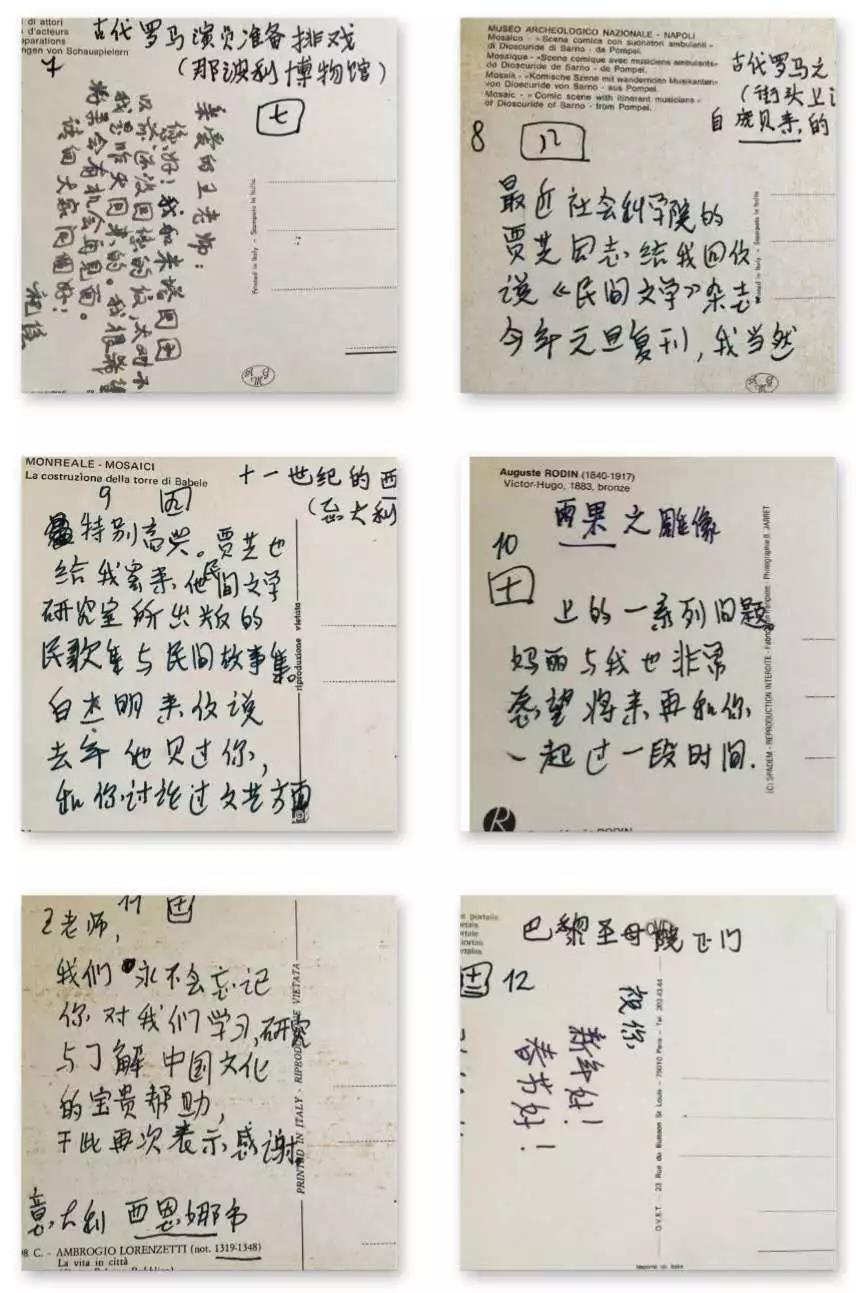 di attori
d'acteurs
parations
ngen von Schauspielern
古代罗马演员准备排戏
(那波利博物馆)
7
七
亲爱的王老师:
您好!我和米塔国
以前还没回信的信,太对不
我是昨天回来的。我很希望
将来会有机会再见面。
请向大家问好!
祝您
Printed in Italy - Stampato in Italia
MUSEO ARCHEOLOGICO NAZIONALE - NAPOLI
Mosaico - «Scena comica con suonatori ambulanti»
di Dioscuride di Sarno - da Pompei.
Mosaïque - «Scène comique avec musiciens ambulants»
de Dioscuride de Sarno - de Pompei.
Mosaik - «Komische Szene mit wandernden Musikanten»
von Dioscuride von Sarno - aus Pompei.
Mosaic - «Comic scene with itinerant musicians»
of Dioscuride of Sarno - from Pompei.
古代罗马之
(街头上
自庞贝来的
8
八
最近社会科学院的
贾芝同志给我回信
说《民间文学》杂志
今年元旦复刊,我当然
Printed in Italy - Stampato in Italia
MONREALE - MOSAICI
La costruzione della torre di Babele
十一世纪的西
(意大利
9
九
特别高兴。贾芝也
给我寄来他民间文学
研究室所出版的
民歌集与民间故事集。
白杰明来信说
去年他见过你,
和你讨论过文艺方面
riproduzione vietata
Auguste RODIN (1840-1917)
Victor-Hugo, 1883, bronze
雨果之雕像
10
十
上的一系列问题。
妈丽与我也非常
愿望将来再和你
一起过一段时间.
(C) SPADEM - REPRODUCTION INTERDITE - Fabrication Française - Photographie B. JARRET
R
11
十一
王老师,
我们永不会忘记
你对我们学习,研究
与了解中国文化
的宝贵帮助,
于此再次表示感谢。
意大利 西恩娜市
PRINTED IN ITALY - RIPRODUZIONE VIETATA
98 C. - AMBROGIO LORENZETTI (not. 1319-1348)
La vita in città
巴黎圣母院正门
十二 12
祝你
新年好!
春节好!
O.V.E.T. - 23 Rue du Buisson St Louis - 75010 Paris - Tél. 203.43.44